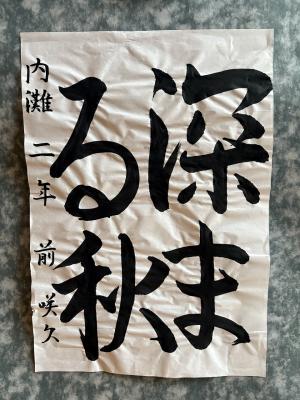 深ま
る秋
内灘 二年 前 咲久